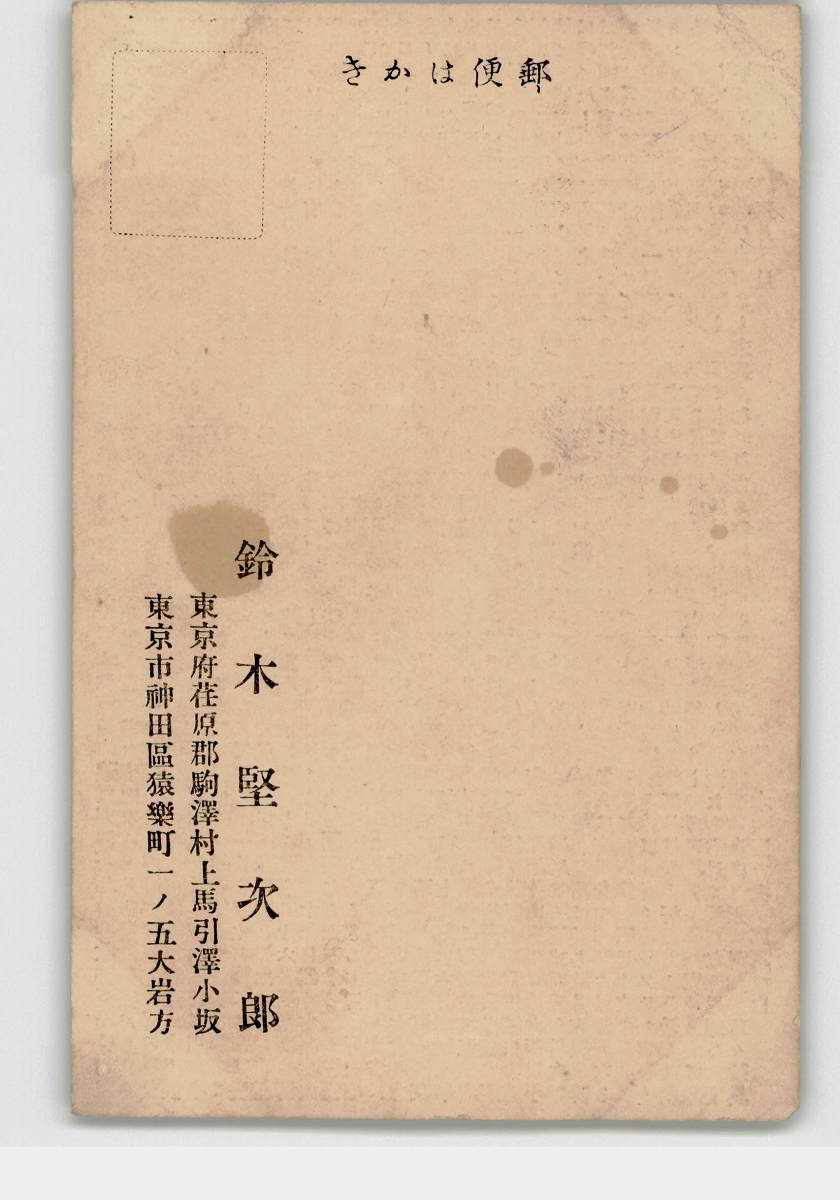 郵便はかき
鈴木堅次郎
東京府荏原郡駒澤村上馬引澤小坂
東京市神田區猿樂町一ノ五大岩方